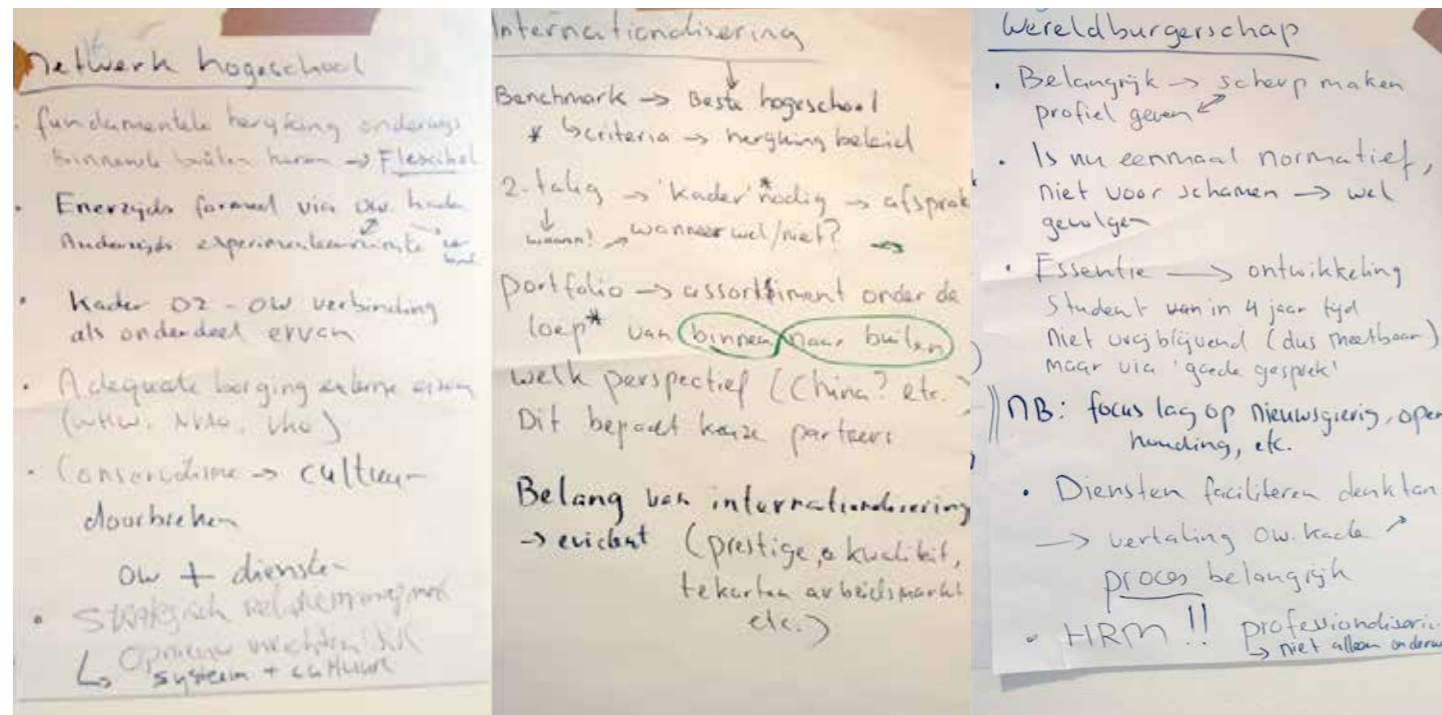 Netwerk hogeschool
· fundamentele herijking onderwijs
Binnenste buiten keren → Flexibel
· Enerzijds formeel via ow. kader
Anderzijds experimenteerruimte
· Kader OZ - OW verbinding
als onderdeel ervan
· Adequate borging externe eisen
(WHW, NVAO,
· Conservatisme → cultuur
doorbreken
OW + diensten
· Strategisch relatiemanagement
Opnieuw inrichten
↳ systeem + cultuur
Internationalisering
↓
Benchmark → Beste hogeschool
* ↳ criteria → herijking beleid
2-talig → 'Kader'* nodig → afsprak
↓
waarom! → wanneer wel/niet? →
portfolio → assortiment onder de
loep* van binnen naar buiten
Welk perspectief (China? etc.
Dit bepaalt keuze partners
Belang van internationalisering
→ evident (prestige, kwaliteit,
tekorten arbeidsmarkt
etc.)
Wereldburgerschap
· Belangrijk → scherp maken
profiel geven
· Is nu eenmaal normatief,
niet voor schamen → wel
gevolgen
· Essentie → ontwikkeling
Student van in 4 jaar tijd
niet vrijblijvend (dus meetbaar)
maar via 'goede gesprek'
NB: focus lag op nieuwsgierig, open
houding, etc.
· Diensten faciliteren denktan
→ vertaling ow. kader
proces belangrijk
· HRM!! professionaliseri
→ niet alleen onderw